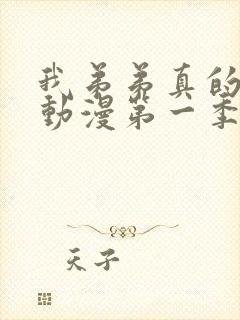 我弟弟真的
動漫第一季
天子